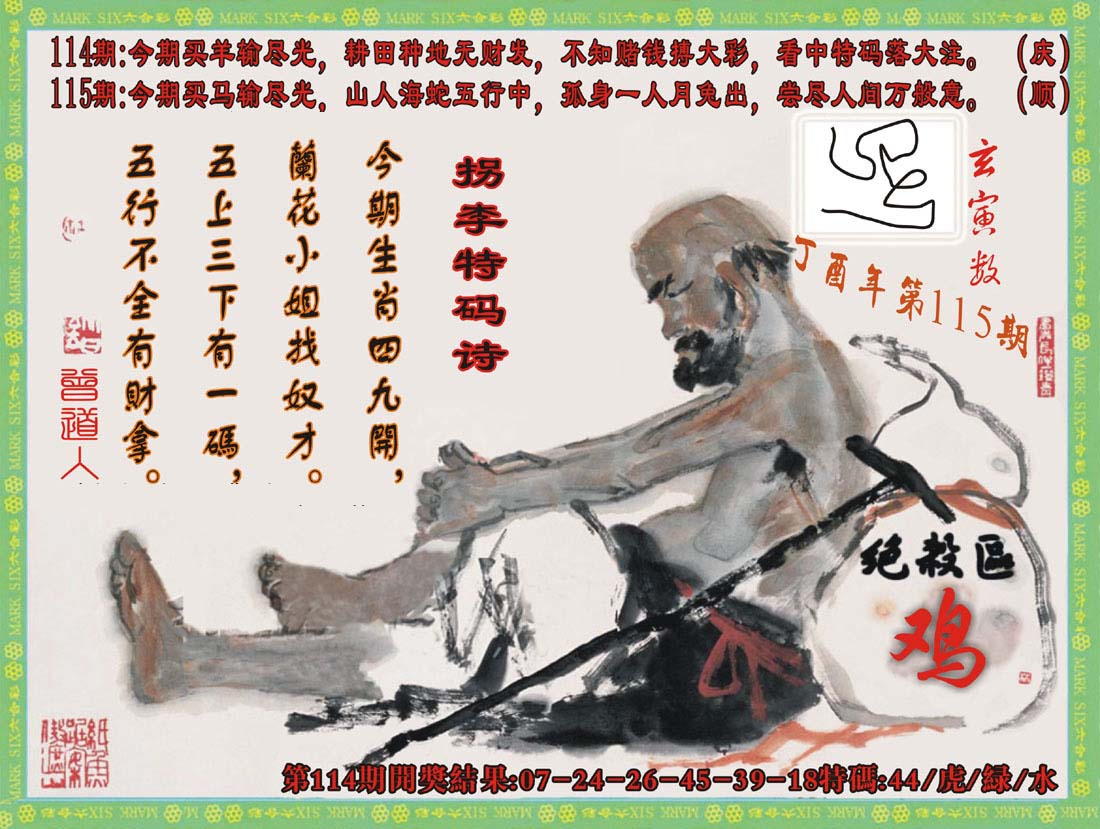 MARK SIX六合彩 MARK SIX六合彩 MARK SIX六合彩 MARK SIX六合彩 MARK SIX六合彩 MARK SIX六合彩
114期:今期买羊输尽光，耕田种地无财发，不知赌钱搏大彩，看中特码落大注。 (庆)
115期:今期买马输尽光，山人海蛇五行中，孤身一人月兔出，尝尽人间万般意。 (顺)
玄寅数
丁酉年第115期
拐李特码诗
今期生肖四九開，
蘭花小姐找奴才。
五上三下有一碼，
五行不全有財拿。
曾道人
绝殺區
鸡
第114期開獎結果:07-24-26-45-39-18特碼:44/虎/緑/水